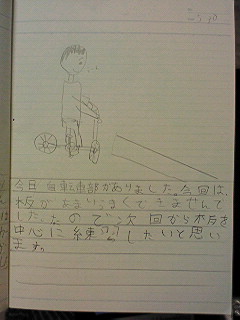 25.10
今日 自転車部がありました。今回は、
坂があまりうまくできませんで
した。なので次回から坂を
中心に練習したいと思い
ます。